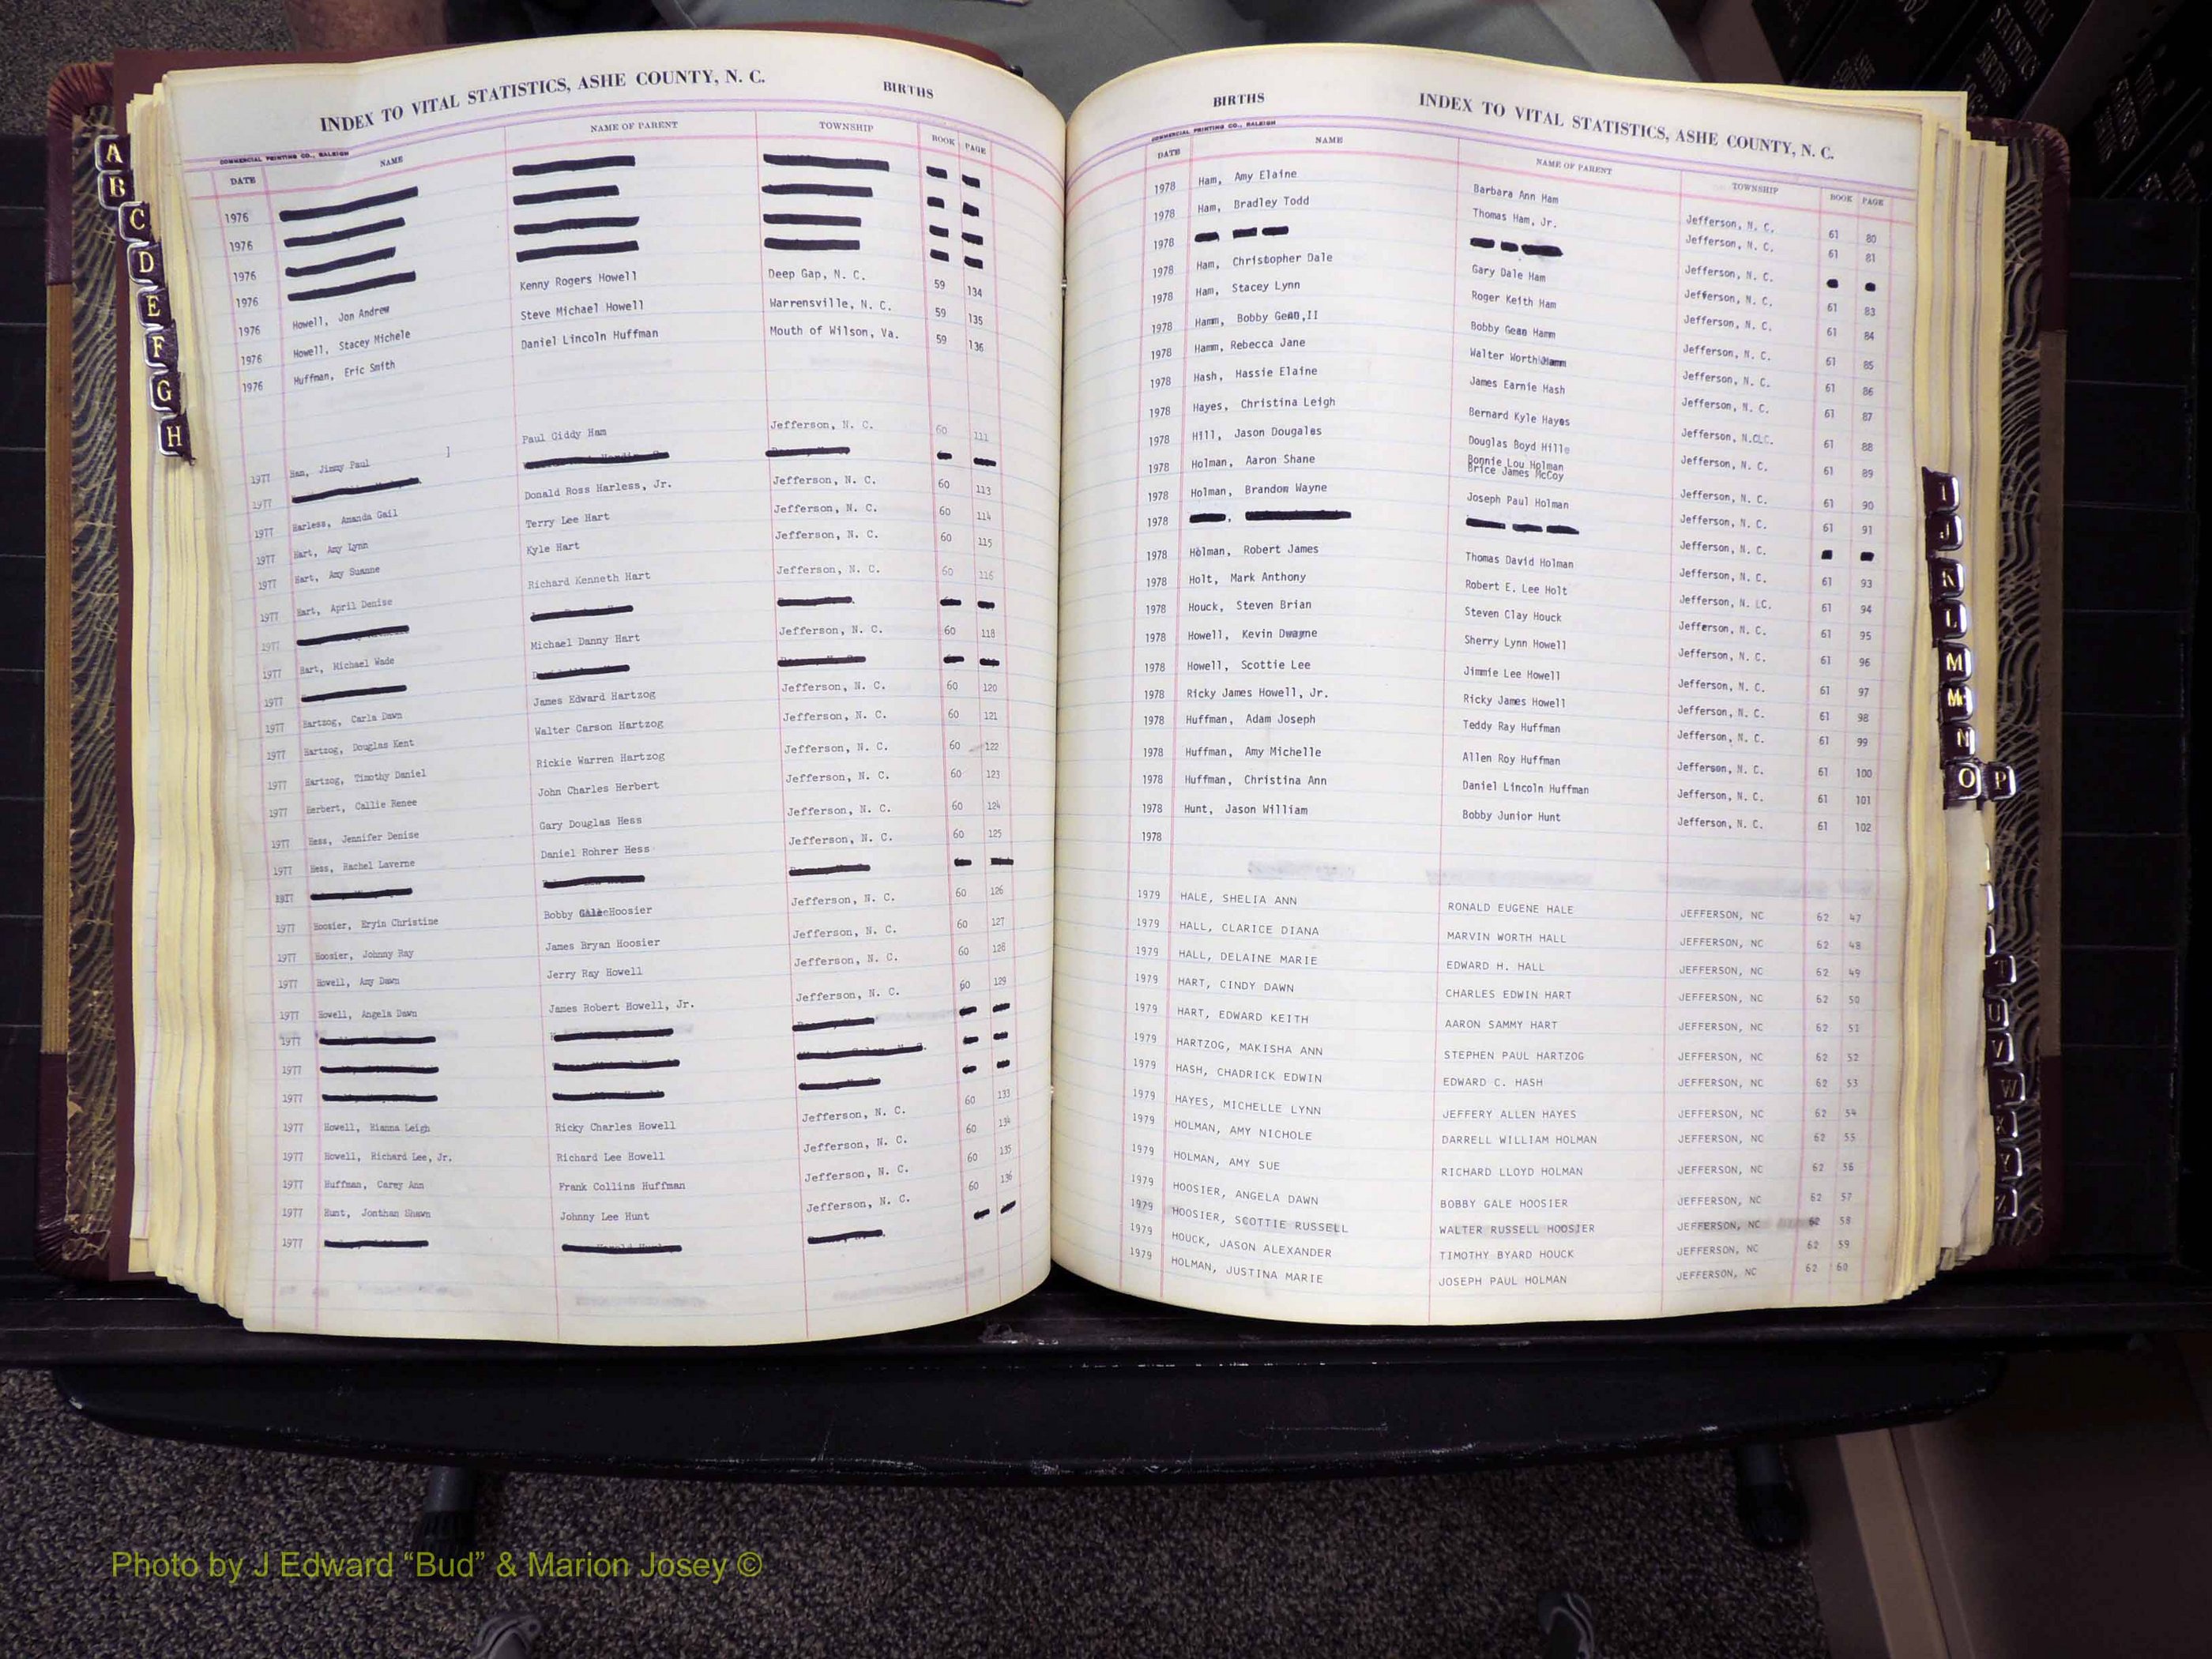 INDEX TO VITAL STATISTICS, ASHE COUNTY, N. C. BIRTHS
COMMERCIAL PRINTING CO., RALEIGH
DATE NAME NAME OF PARENT TOWNSHIP BOOK PAGE
1976
1976
1976
1976
1976 Howell, Jon Andrew Kenny Rogers Howell Deep Gap, N. C. 59 134
1976 Howell, Stacey Michele Steve Michael Howell Warrensville, N. C. 59 135
1976 Huffman, Eric Smith Daniel Lincoln Huffman Mouth of Wilson, Va. 59 136
1977 Ham, Jimmy Paul Paul Giddy Ham Jefferson, N. C. 60 111
1977
1977 Harless, Amanda Gail Donald Ross Harless, Jr. Jefferson, N. C. 60 113
1977 Hart, Amy Lynn Terry Lee Hart Jefferson, N. C. 60 114
1977 Hart, Amy Suanne Kyle Hart Jefferson, N. C. 60 115
1977 Hart, April Denise Richard Kenneth Hart Jefferson, N. C. 60 116
1977
1977 Hart, Michael Wade Michael Danny Hart Jefferson, N. C. 60 118
1977
1977 Hartzog, Carla Dawn James Edward Hartzog Jefferson, N. C. 60 120
1977 Hartzog, Douglas Kent Walter Carson Hartzog Jefferson, N. C. 60 121
1977 Hartzog, Timothy Daniel Rickie Warren Hartzog Jefferson, N. C. 60 122
1977 Herbert, Callie Renee John Charles Herbert Jefferson, N. C. 60 123
1977 Hess, Jennifer Denise Gary Douglas Hess Jefferson, N. C. 60 124
1977 Hess, Rachel Laverne Daniel Rohrer Hess Jefferson, N. C. 60 125
1977
1977 Hoosier, Eryin Christine Bobby Gale Hoosier Jefferson, N. C. 60 126
1977 Hoosier, Johnny Ray James Bryan Hoosier Jefferson, N. C. 60 127
1977 Howell, Amy Dawn Jerry Ray Howell Jefferson, N. C. 60 128
1977 Howell, Angela Dawn James Robert Howell, Jr. Jefferson, N. C. 60 129
1977
1977
1977
1977 Howell, Rianna Leigh Ricky Charles Howell Jefferson, N. C. 60 133
1977 Howell, Richard Lee, Jr. Richard Lee Howell Jefferson, N. C. 60 134
1977 Huffman, Carey Ann Frank Collins Huffman Jefferson, N. C. 60 135
1977 Hunt, Jonthan Shawn Johnny Lee Hunt Jefferson, N. C. 60 136
1977
BIRTHS INDEX TO VITAL STATISTICS, ASHE COUNTY, N. C.
COMMERCIAL PRINTING CO., RALEIGH
DATE NAME NAME OF PARENT TOWNSHIP BOOK PAGE
1978 Ham, Amy Elaine Barbara Ann Ham Jefferson, N. C. 61 80
1978 Ham, Bradley Todd Thomas Ham, Jr. Jefferson, N. C. 61 81
1978 Jefferson, N. C.
1978 Ham, Christopher Dale Gary Dale Ham Jefferson, N. C. 61 83
1978 Ham, Stacey Lynn Roger Keith Ham Jefferson, N. C. 61 84
1978 Hamm, Bobby Gean,II Bobby Gean Hamm Jefferson, N. C. 61 85
1978 Hamm, Rebecca Jane Walter Worth Hamm Jefferson, N. C. 61 86
1978 Hash, Hassie Elaine James Earnie Hash Jefferson, N. C. 61 87
1978 Hayes, Christina Leigh Bernard Kyle Hayes Jefferson, N. C. 61 88
1978 Hill, Jason Dougales Douglas Boyd Hill Jefferson, N. C. 61 89
1978 Holman, Aaron Shane Bonnie Lou Holman
Brice James McCoy Jefferson, N. C. 61 90
1978 Holman, Brandom Wayne Joseph Paul Holman Jefferson, N. C. 61 91
1978 Jefferson, N. C.
1978 Holman, Robert James Thomas David Holman Jefferson, N. C. 61 93
1978 Holt, Mark Anthony Robert E. Lee Holt Jefferson, N. C. 61 94
1978 Houck, Steven Brian Steven Clay Houck Jefferson, N. C. 61 95
1978 Howell, Kevin Dwayne Sherry Lynn Howell Jefferson, N. C. 61 96
1978 Howell, Scottie Lee Jimmie Lee Howell Jefferson, N. C. 61 97
1978 Ricky James Howell, Jr. Ricky James Howell Jefferson, N. C. 61 98
1978 Huffman, Adam Joseph Teddy Ray Huffman Jefferson, N. C. 61 99
1978 Huffman, Amy Michelle Allen Roy Huffman Jefferson, N. C. 61 100
1978 Huffman, Christina Ann Daniel Lincoln Huffman Jefferson, N. C. 61 101
1978 Hunt, Jason William Bobby Junior Hunt Jefferson, N. C. 61 102
1978
1979 HALE, SHELIA ANN RONALD EUGENE HALE JEFFERSON, NC 62 47
1979 HALL, CLARICE DIANA MARVIN WORTH HALL JEFFERSON, NC 62 48
1979 HALL, DELAINE MARIE EDWARD H. HALL JEFFERSON, NC 62 49
1979 HART, CINDY DAWN CHARLES EDWIN HART JEFFERSON, NC 62 50
1979 HART, EDWARD KEITH AARON SAMMY HART JEFFERSON, NC 62 51
1979 HARTZOG, MAKISHA ANN STEPHEN PAUL HARTZOG JEFFERSON, NC 62 52
1979 HASH, CHADRICK EDWIN EDWARD C. HASH JEFFERSON, NC 62 53
1979 HAYES, MICHELLE LYNN JEFFERY ALLEN HAYES JEFFERSON, NC 62 54
1979 HOLMAN, AMY NICHOLE DARRELL WILLIAM HOLMAN JEFFERSON, NC 62 55
1979 HOLMAN, AMY SUE RICHARD LLOYD HOLMAN JEFFERSON, NC 62 56
1979 HOOSIER, ANGELA DAWN BOBBY GALE HOOSIER JEFFERSON, NC 62 57
1979 HOOSIER, SCOTTIE RUSSELL WALTER RUSSELL HOOSIER JEFFERSON, NC 62 58
1979 HOUCK, JASON ALEXANDER TIMOTHY BYARD HOUCK JEFFERSON, NC 62 59
1979 HOLMAN, JUSTINA MARIE JOSEPH PAUL HOLMAN JEFFERSON, NC 62 60
A
B
C
D
E
F
G
H
I
J
K
L
M
N
O P
T
U
V
W
Y
Z
Photo by J Edward “Bud” & Marion Josey ©